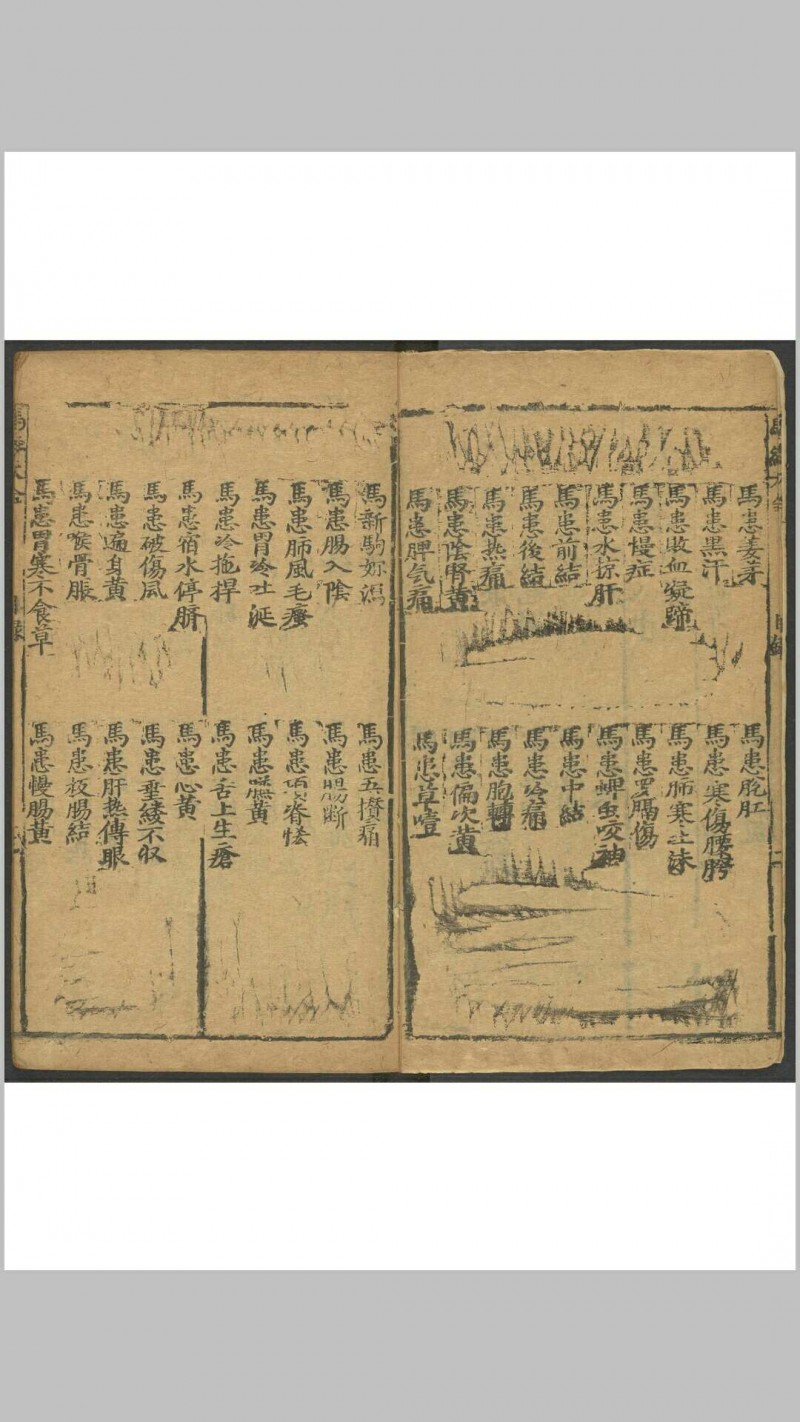 馬患姜芽
馬患黒汗
馬患敗血凝蹄
馬患慢症
馬患水掠肝
馬患前結
馬患後結
馬患热痛
馬患陰腎黄
馬患脾气痛
馬患脫肛
馬患寒傷腰胯
馬患肺寒吐沫
馬患罗膈傷
馬患蜱虫咬袖
馬患中結
馬患冷痛
馬患胞轉
馬患偏次黄
馬患草噎
目録
二
馬新駒妳瀉
馬患腸入陰
馬患肺風毛瘙
馬患胃冷吐涎
馬患冷拖捍
馬患宿水停臍
馬患破傷風
馬患遍身黄
馬患喉骨脹
馬患胃寒不食草
馬患五攢痛
馬患腸断
馬患脊恡
馬患臕黄
馬患舌上生瘡
馬患心黄
馬患垂縷不収
馬患肝热傳眼
馬患板腸結
馬患慢腸黄